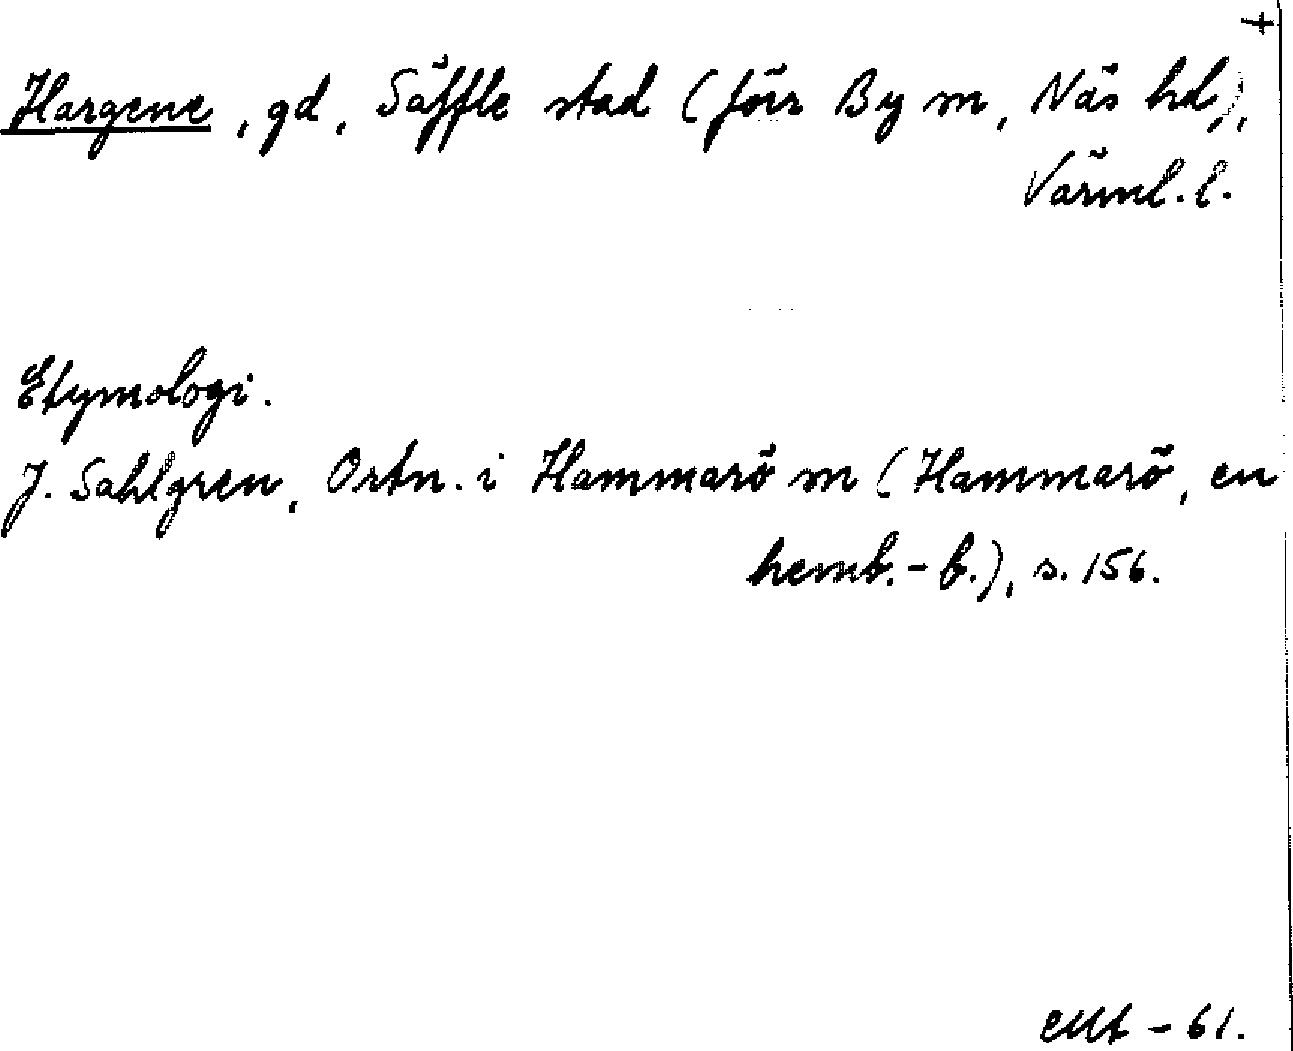 +
Hargene, gd, Säffle stad (förr By sn, Näs hd),
Värml. l.
Etymologi.
J. Sahlgren, Ortn. i Hammarö sn (Hammarö, en
hemb.-b.), s. 156.
- 61.